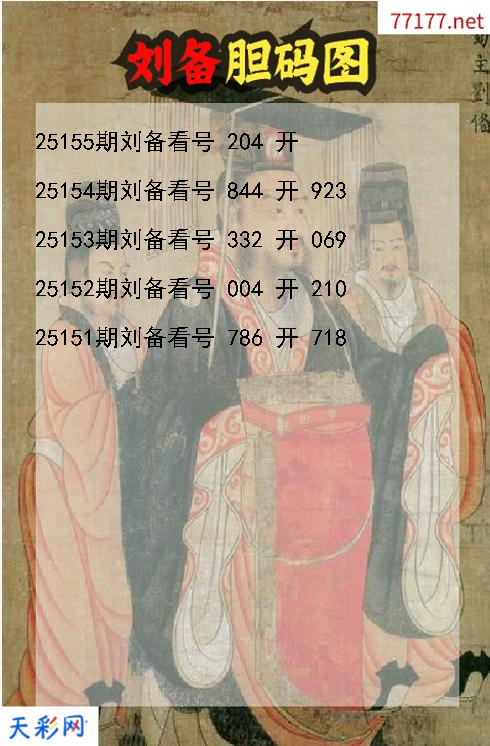 77177.net
蜀主劉備
刘备胆码图
25155期刘备看号 204 开
25154期刘备看号 844 开 923
25153期刘备看号 332 开 069
25152期刘备看号 004 开 210
25151期刘备看号 786 开 718
天彩网